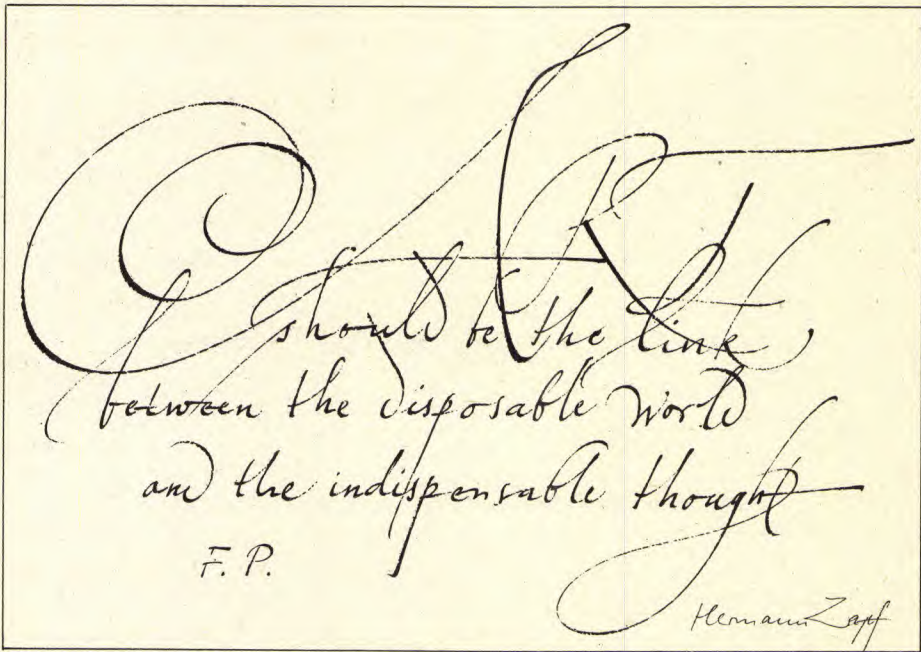 ART
should be the link
between the disposable world
and the indispensable thought
F. P.
Hermann Zapf